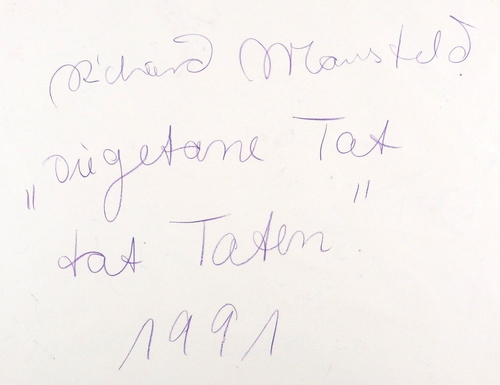 Richard Mansfeld
„Die getane Tat
tat Taten."
1991